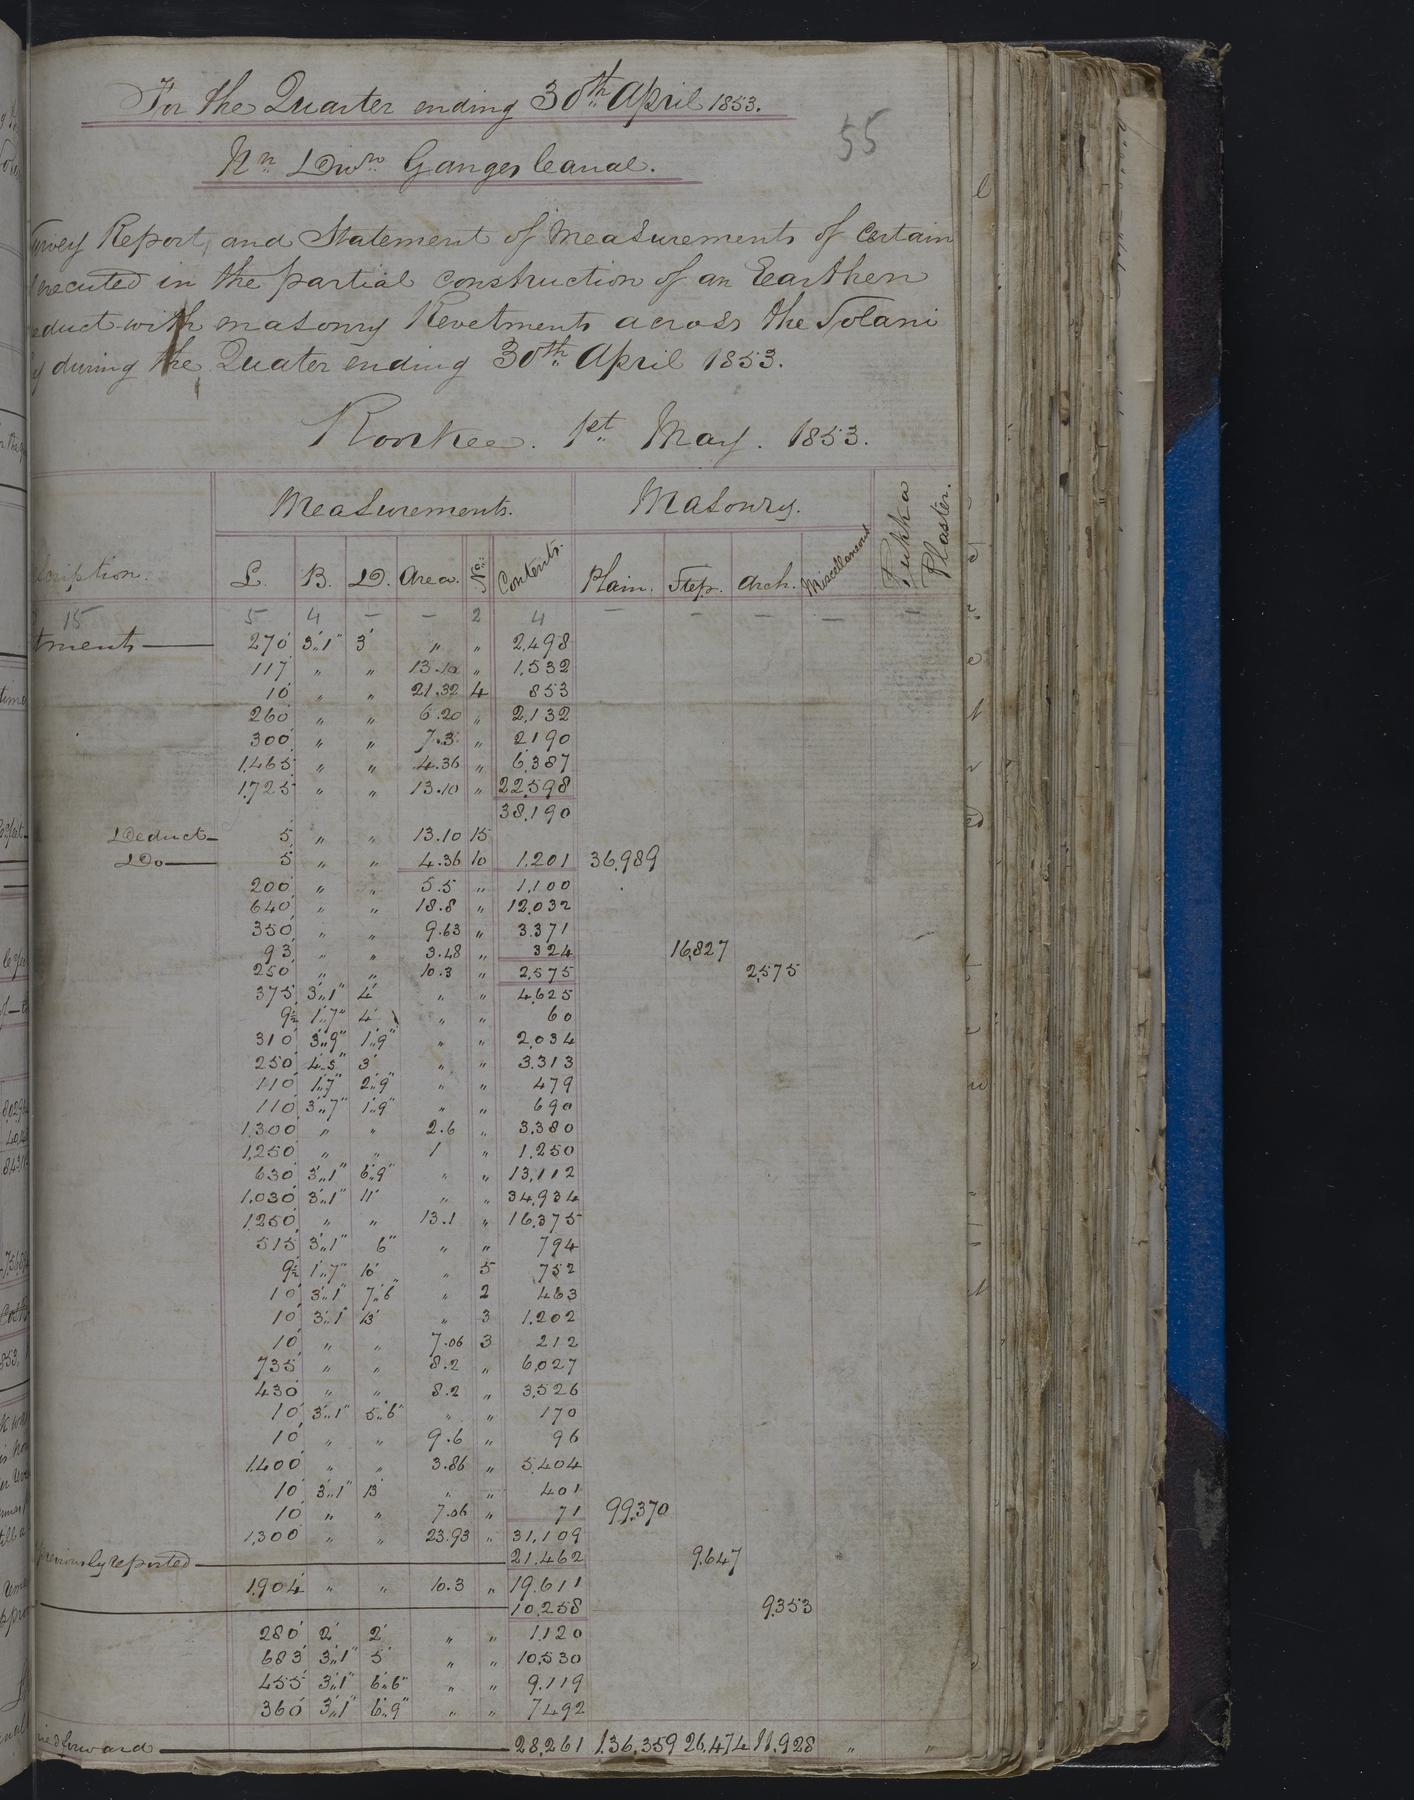 For the Quarter ending 30th April 1853.
55
Nn Divn Ganges Canal.
Survey Report, and Statement of Measurements of Certain
executed in the partial construction of an Earthen
educt with masonry Revetments across the Solani
y during the Quater ending 30th April 1853.
Roorkee. 1st May. 1853.
Measurements. Masonry. Pukka Plaster.
scription. L. B. D. Area. No. Contents. Plain. Step. Arch. Miscellaneous
15 5 4 – – 2 4 – – – – 1
tments 270' 3'..1" 3' " " 2,498
117' " " 13.10 " 1,532
10' " " 21.32 4 853
260' " " 8.20 " 2,132
300' " " 7.3 " 2190
1,465' " " 4.36 " 6,387
1,725' " " 13.10 " 22,598
38,190
Deduct 5' " " 13.10 15
Do 5' " " 4.36 10 1,201 36,989
200' " " 5.5 " 1,100
640' " " 18.8 " 12,032
350' " " 9.63 " 3.371
93' " " 3.48 " 324 16,827
250' " " 10.3 " 2,575 2,575
375' 3'..1" 4' " " 4,625
9½ 1'..7" 4' " " 60
310' 3'..9" 1'..9" " " 2,034
250' 4'..5" 3' " " 3.313
110' 1'..7" 2'..9" " " 479
110' 3'..7" 1'..9" " " 690
1,300' " " 2.6 " 3,380
1,250' " " 1 " 1,250
630' 3'..1" 6'..9" " " 13,112
1,030' 3'..1" 11' " " 34,934
1,250' " " 13.1 " 16,375
515' 3'..1" 6" " " 794
9½ 1'..7" 10' " 5 752
10' 3'..1" 7'..6" " 2 463
10' 3'..1" 13' " 3 1,202
10' " " 7.06 3 212
735' " " 8.2 " 6,027
430' " " 8.2 " 3,526
10' 3'..1" 5'..6" " " 170
10' " " 9.6 " 96
1,400' " " 3.86 " 5,404
10' 3'..1" 13' " " 401
10' " " 7.06 " 71 99,370
1,300' " " 23.93 " 31,109
previously reported 21,462 9,647
1,904' " " 10.3 " 19,611
10,258 9,353
280' 2' 2' " " 1,120
683' 3'..1" 5' " " 10,530
455' 3'..1" 6'..6" " " 9,119
360' 3'..1" 6'..9" " " 7492
ied forward 28,261 1,36,359 26,474 11,928 " "